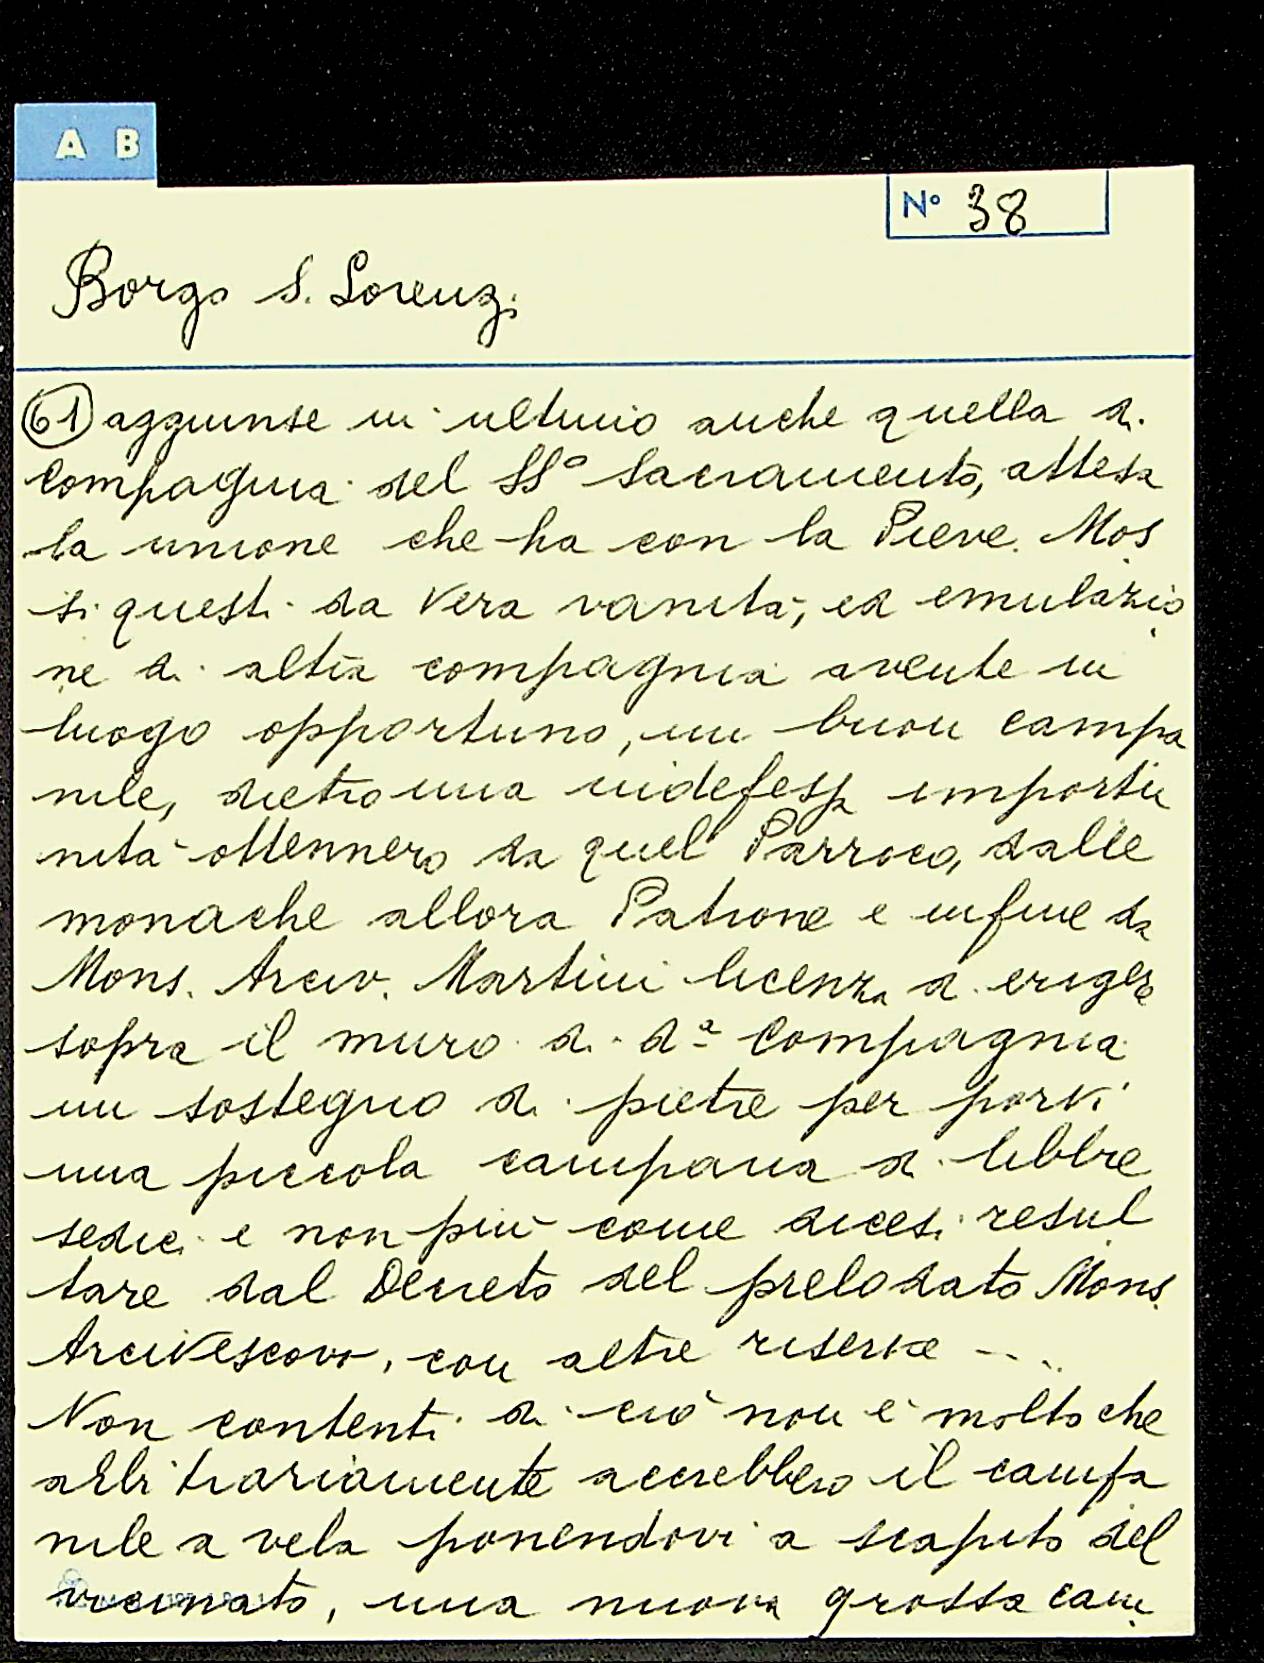 A B
N° 38
Borgo S. Lorenzo
61) aggiunse in ultimo anche quella di
Compagnia del SS° Sacramento, attesa
la unione che ha con la Pieve. Mos
si questi da vera vanità, ed emulazio
ne di altra compagnia avente in
luogo opportuno, un buon campa
nile, dietro una indefessa importu
nità ottennero da quel Parroco, dalle
monache allora Patrone e infine da
Mons. Arciv. Martini licenza di erigere
sopra il muro di d.ª Compagnia
un sostegno di pietre per porvi
una piccola campana di libbre
sedici e non più come dicesi resul
tare dal Decreto del prelodato Mons.
Arcivescovo, con altre riserve ....
Non contenti di ciò non è molto che
arbitrariamente accrebbero il campa
nile a vela ponendovi a scapito del
vicinato, una nuova grossa cam